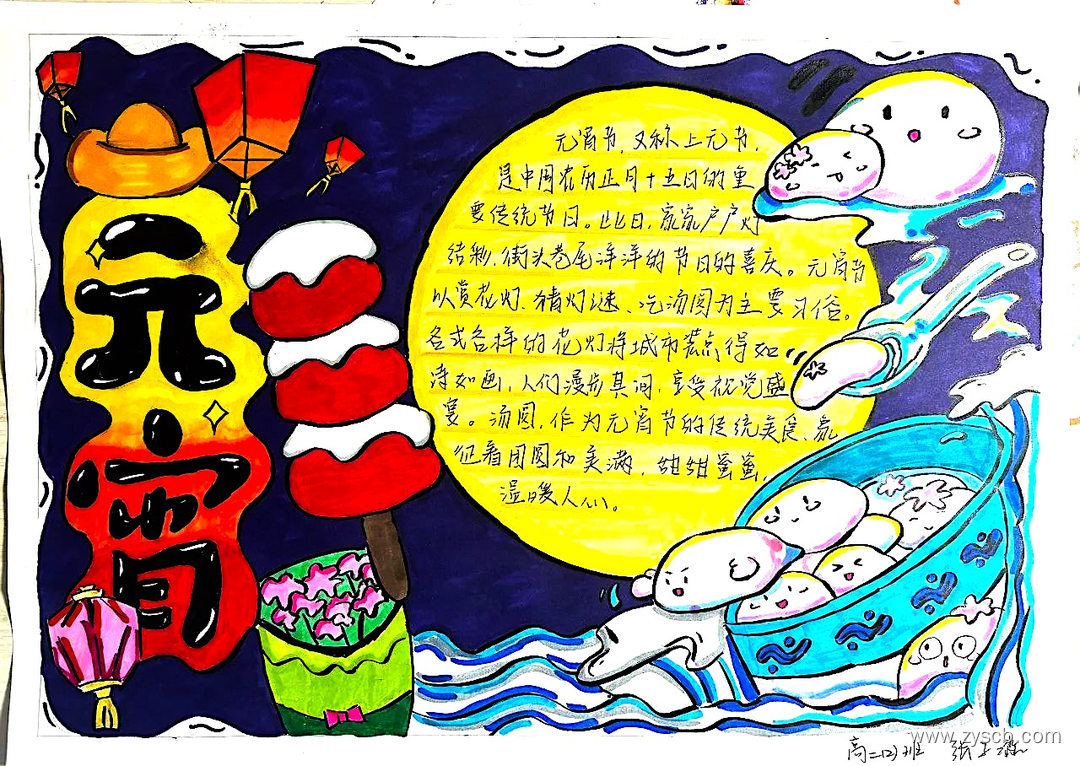 元宵
元宵节，又称上元节，
是中国农历正月十五日的重
要传统节日。此日，家家户户灯
结彩，街头巷尾洋洋的节日的喜庆。元宵节
以赏花灯、猜灯谜、吃汤圆为主要习俗。
各式各样的花灯将城市装点得如
诗如画，人们漫步其间，享受视觉盛
宴。汤圆，作为元宵节的传统美食、象
征着团圆和美满，甜甜蜜蜜，
温暖人心。
www.zyscb.com
高二(2)班 张